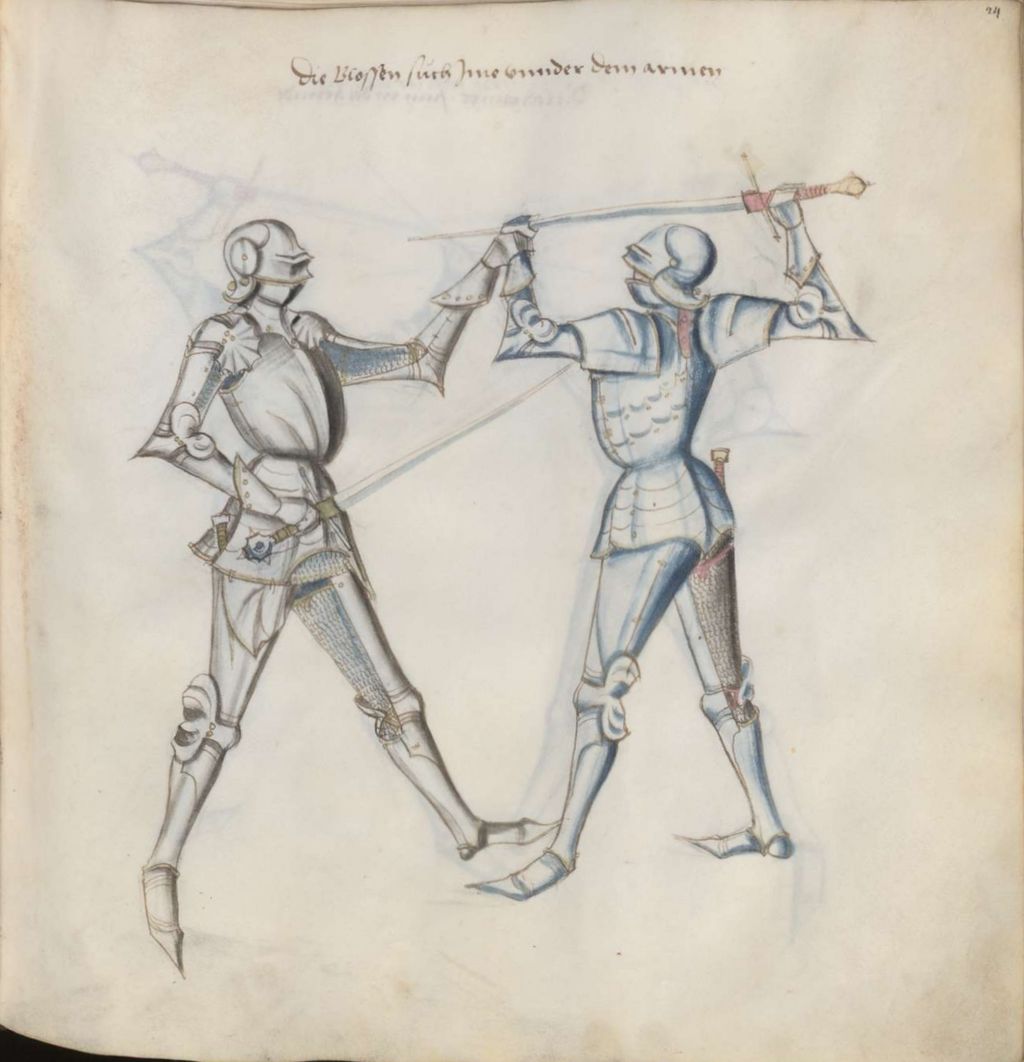 24
die Blossen such Jme vnnder dem armen